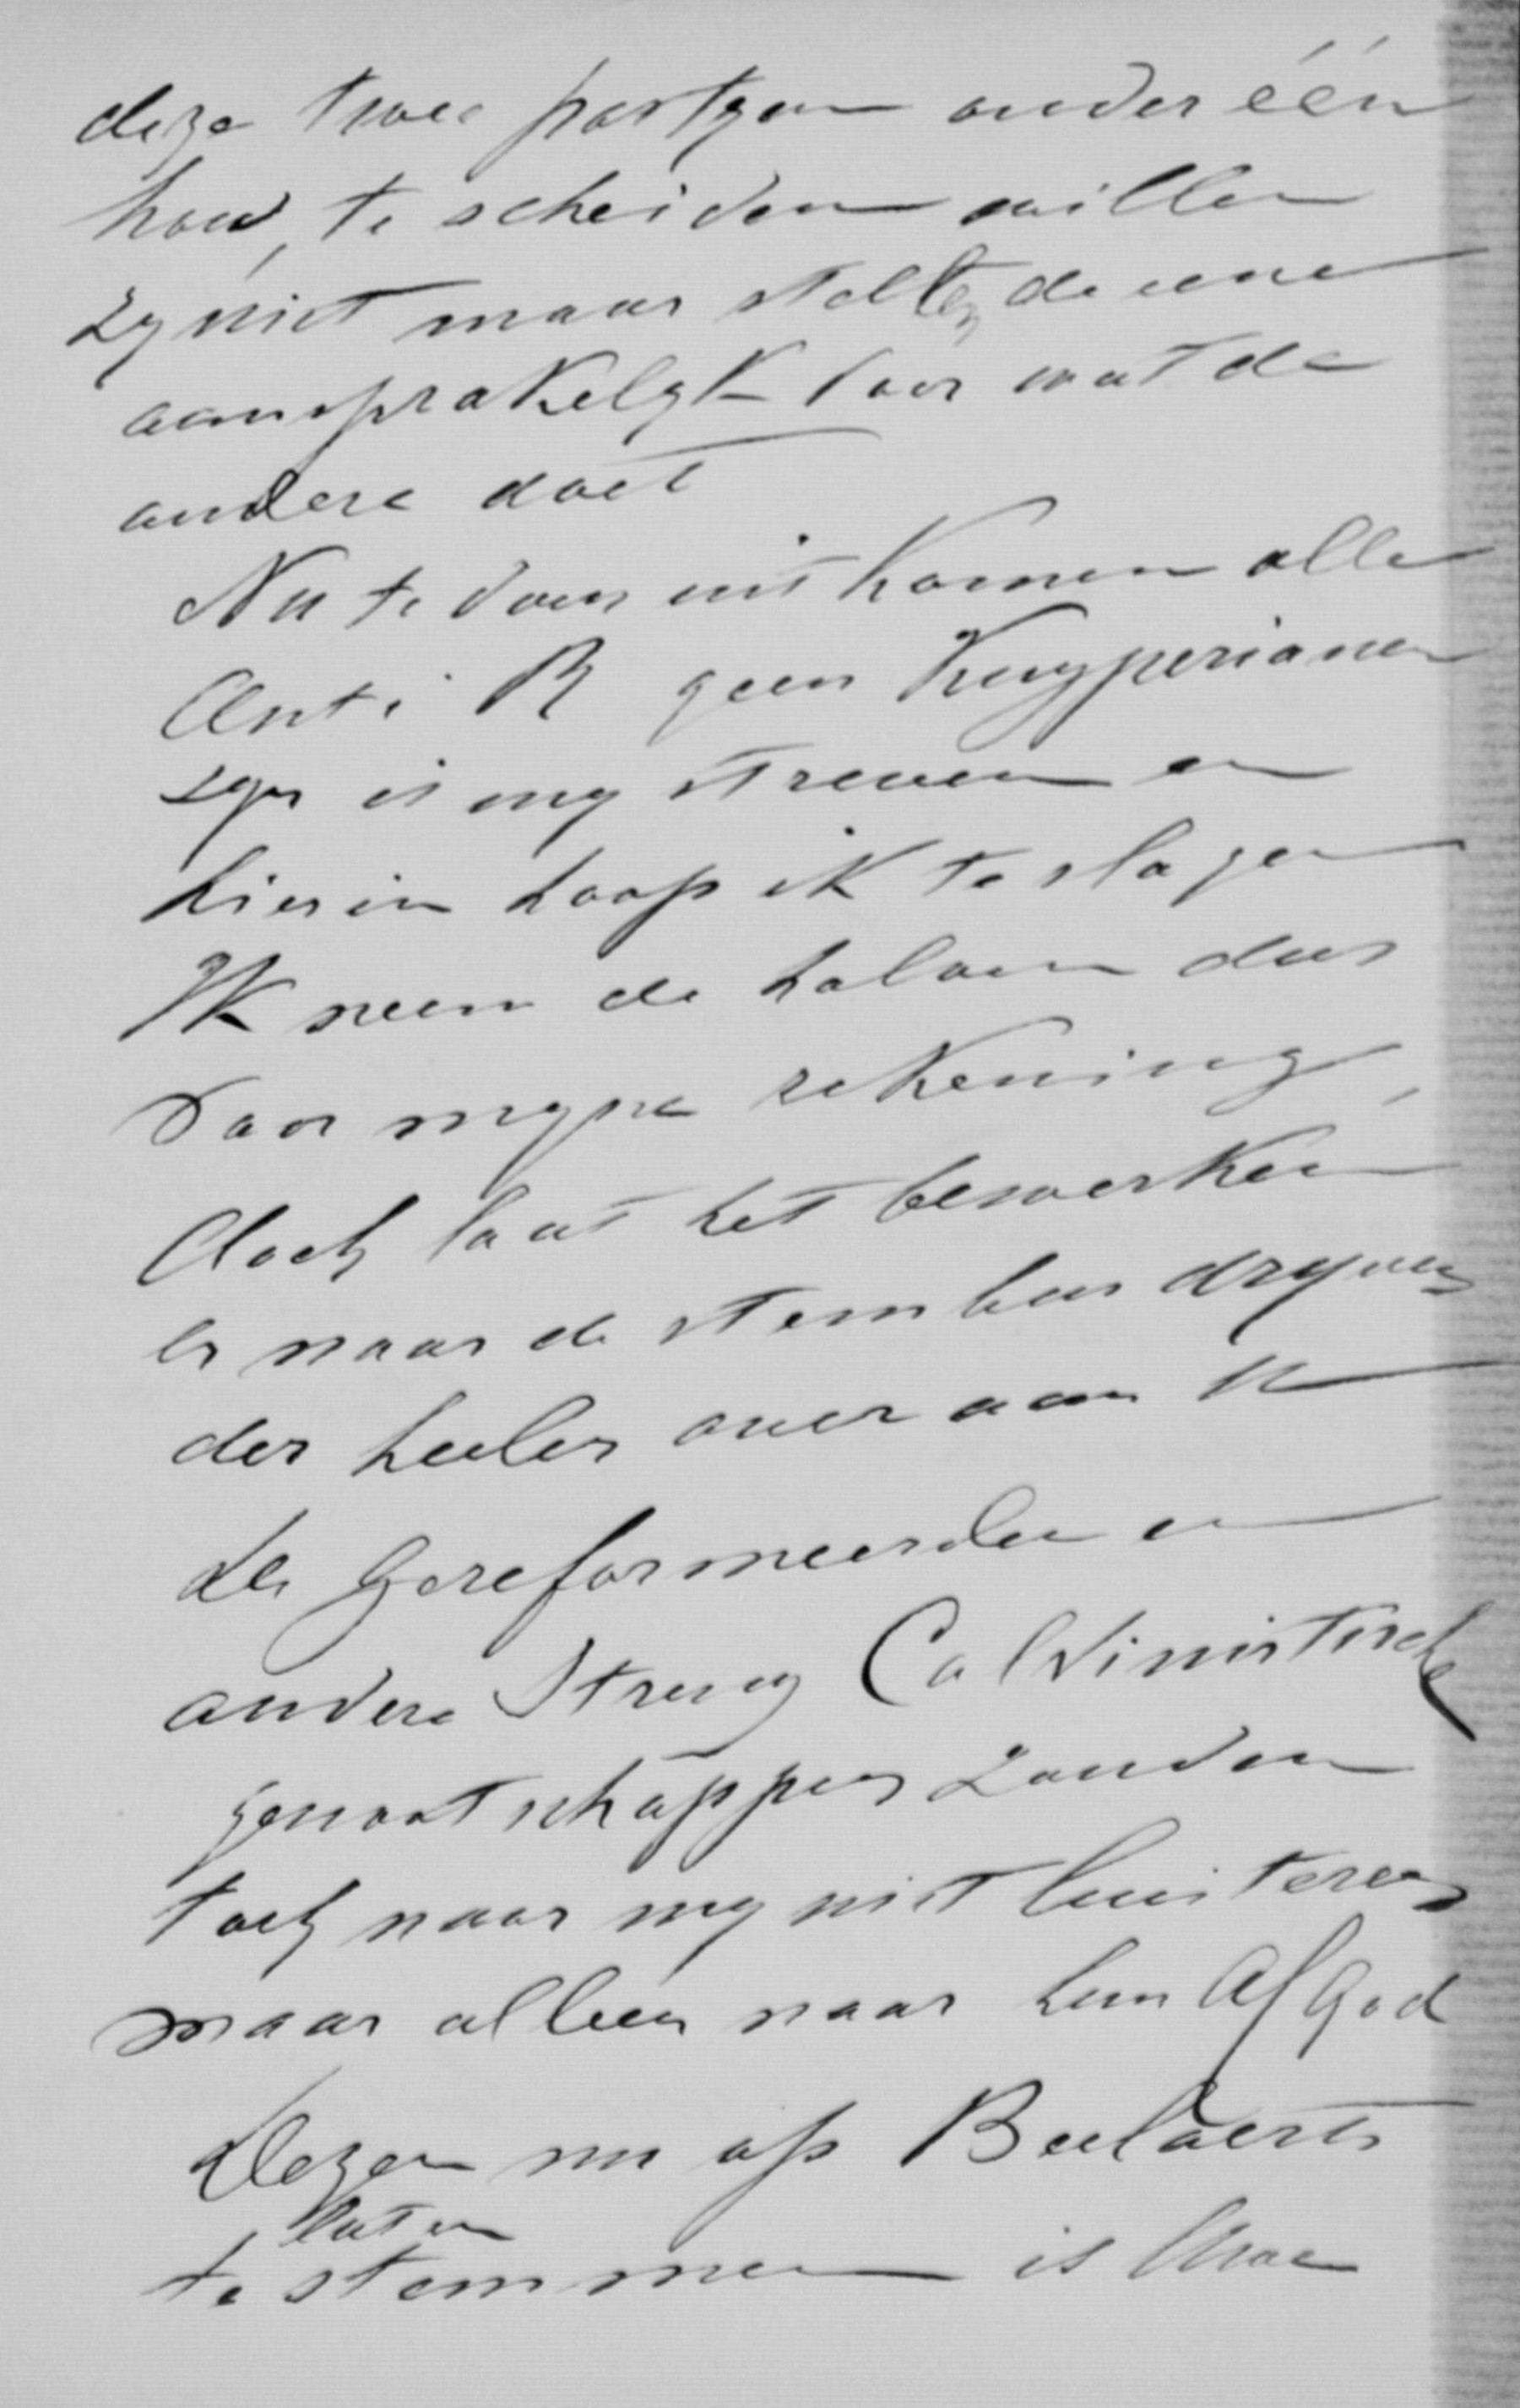 deze twee partyen onder één
houd, te scheiden willen
zy niet maar stellen de eene
aansprakelyk voor wat de
andere doet
Nu te doen uitkomen alle
Anti R geen Kuyperianen
zyn is my streven en
hierin hoop ik te slagen
Ik neem de halven dus
voor myne rekening,
doch laat het bewerken
en naar de stembus dryven
der heelen over aan U
de Gereformeerden en
andere Streng Calvinistische
genootschappen zouden
toch naar my niet luisteren
maar alleen naar hun AfGod
dezen nu op Beelaerts
laten
te stemmen is Uwe